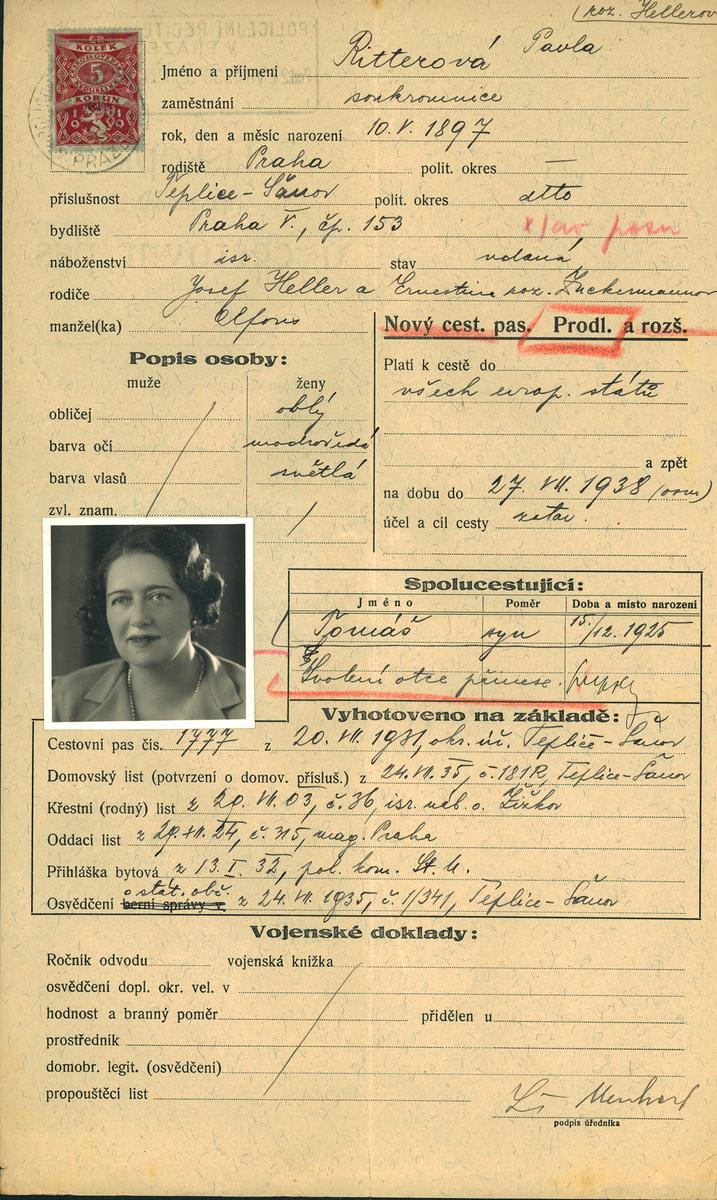 (roz. Hellerov
KOLEK
5
KORUN
PRAZE
Jméno a příjmení Ritterová Pavla
zaměstnání soukromnice
rok, den a měsíc narození 10. V. 1897
rodiště Praha polit. okres —
příslušnost Teplice-Šanov polit. okres dtto
bydliště Praha V., čp. 153
náboženství isr. stav vdaná
rodiče Josef Heller a Ernestina roz. Zuckermannov
manžel(ka) Alfons
Nový cest. pas. Prodl. a rozš.
Popis osoby:
muže ženy
obličej oblý
barva očí modrošedá
barva vlasů světlá
zvl. znam. /
Platí k cestě do
všech evrop. států
a zpět
na dobu do 27. VII. 1938
účel a cíl cesty zotav.
Spolucestující:
Jméno Poměr Doba a místo narození
Tomáš syn 15./12. 1925
Svolení otce přinese.
Vyhotoveno na základě:
Cestovní pas čís. 1777 z 20. VII. 1931, okr. úř. Teplice-Šanov
Domovský list (potvrzení o domov. přísluš.) z 24. VII. 35, č. 181R, Teplice-Šanov
Křestní (rodný) list z 20. VII. 03, č. 36, isr. náb. o. Žižkov
Oddací list z 29. XII. 24, č. 315, mag. Praha
Přihláška bytová z 13. I. 32, pol. kom. St. M.
o stát. obč.
Osvědčení berní správy v. z 24. VII. 1935, č. 1/341, Teplice-Šanov
Vojenské doklady:
Ročník odvodu vojenská knížka
osvědčení dopl. okr. vel. v
hodnost a branný poměr přidělen u
prostředník
domobr. legit. (osvědčení)
propouštěcí list
podpis úředníka